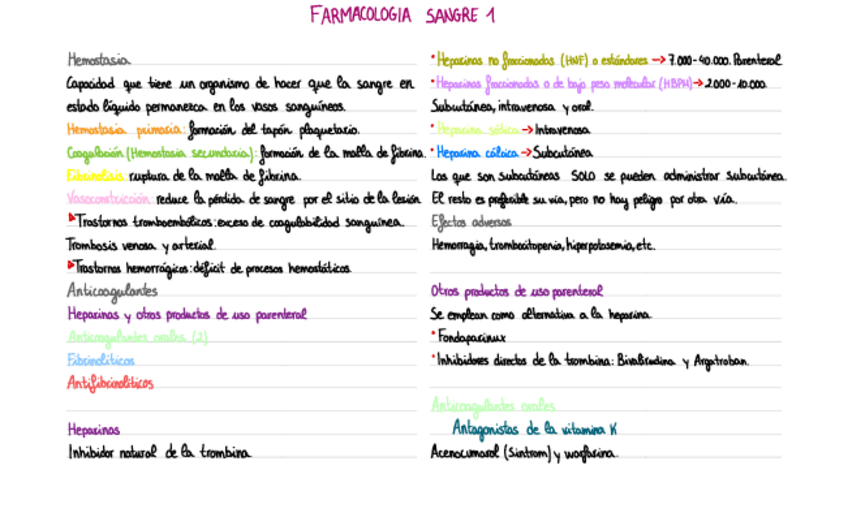 FARMACOLOGIA SANGRE 1
Hemostasia
Capacidad que tiene un organismo de hacer que la sangre en
estado líquido permanezca en los vasos sanguíneos.
Hemostasia primaria: formación del tapón plaquetario.
Coagulación (Hemostasia secundaria): formación de la malla de fibrina.
Fibrinolisis: ruptura de la malla de fibrina.
Vasoconstricción: reduce la pérdida de sangre por el sitio de la lesión.
Trastornos tromboembólicos: exceso de coagulabilidad sanguínea.
Trombosis venosa y arterial.
Trastornos hemorrágicos: déficit de procesos hemostáticos.
Anticoagulantes
Heparinas y otros productos de uso parenteral
Anticoagulantes orales (2)
Fibrinolíticos
Antifibrinolíticos
Heparinas
Inhibidor natural de la trombina.
· Heparinas no fraccionadas (HNF) o estándares → 7.000-40.000. Parenteral
· Heparinas fraccionadas o de bajo peso molecular (HBPM) → 2.000-10.000.
Subcutánea, intravenosa y oral.
· Heparina sódica → Intravenosa
· Heparina cálcica → Subcutánea
Las que son subcutáneas SOLO se pueden administrar subcutánea.
El resto es preferible su vía, pero no hay peligro por otra vía.
Efectos adversos
Hemorragia, trombocitopenia, hiperpotasemia, etc.
Otros productos de uso parenteral
Se emplean como alternativa a la heparina.
· Fondaparinux
· Inhibidores directos de la trombina: Bivalirudina y Argatroban.
Anticoagulantes orales
Antagonistas de la vitamina K
Acenocumarol (Sintrom) y warfarina.